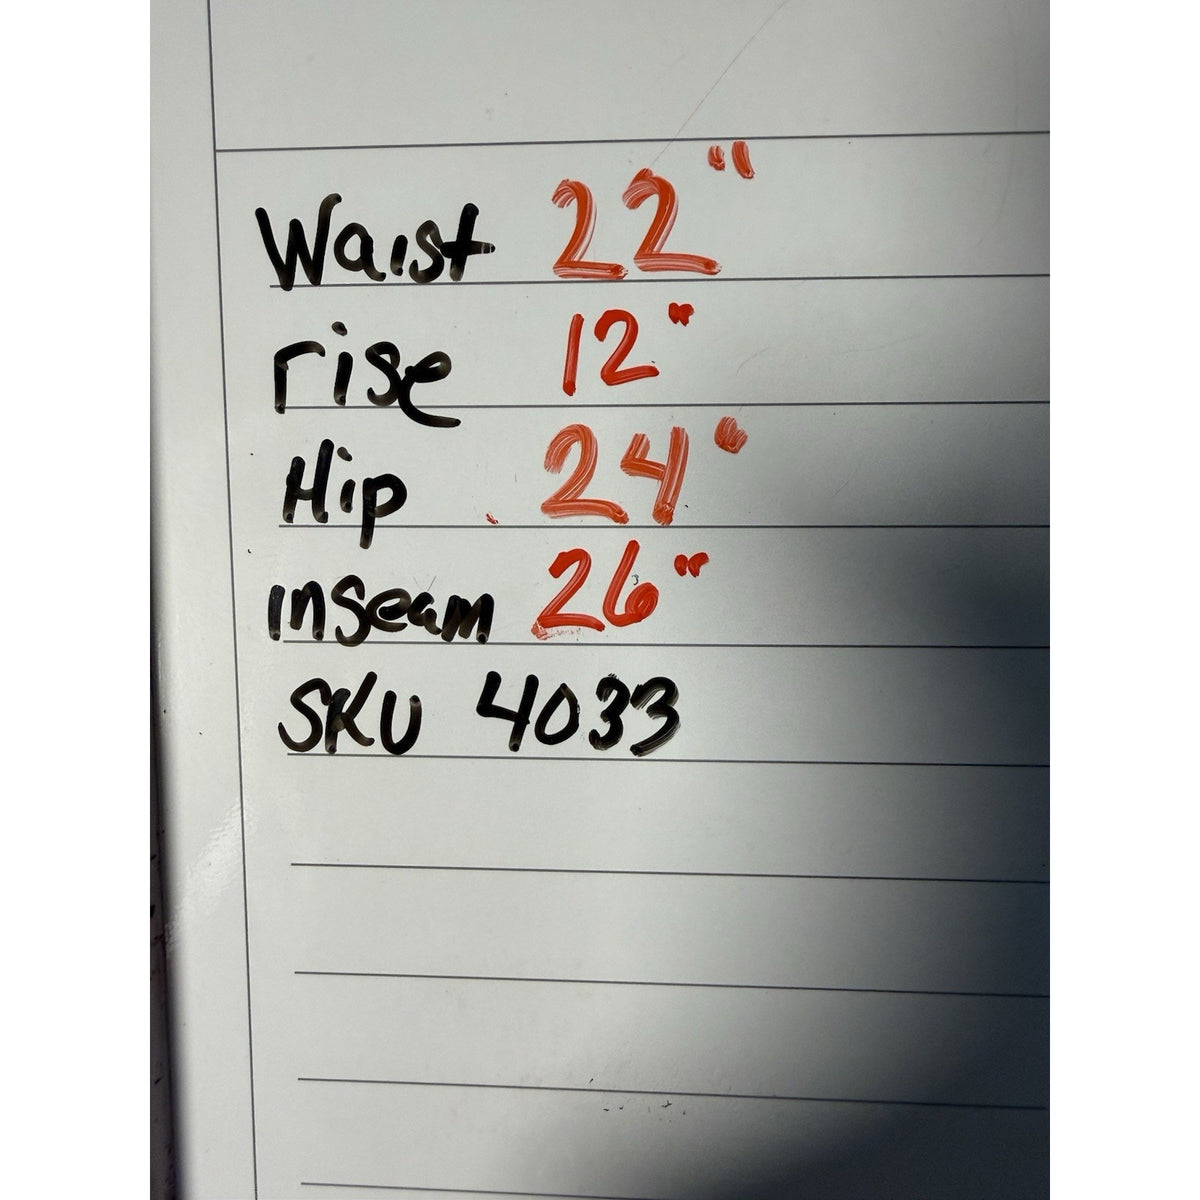 Waist 22"
rise 12"
Hip 24"
inseam 26"
SKU 4033